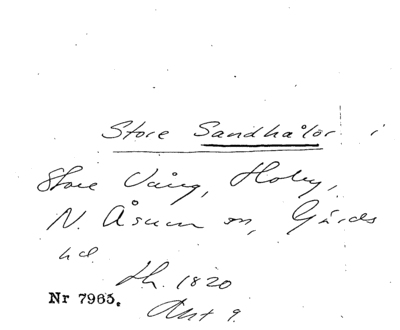 Store Sandhålor i
Store Vång, Holey,
N. Åsum sn, Gärds
hd
Th. 1820
Nr 7965.
Akt 9.